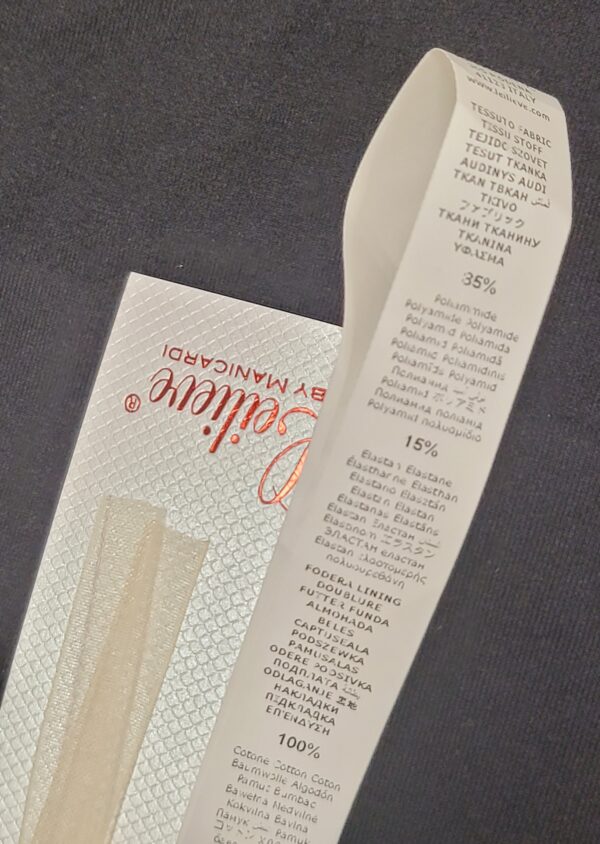 41123 ITALY
www.leilieve.com
TESSUTO FABRIC
TISSU STOFF
TEJIDO SZOVET
TESUT TKANKA
AUDINYS AUDI
TKAN ТВКАН
TKIVO
ファブリック
ТКАНИ ТКАНИНУ
TKANINA
ΥΦΑΣΜΑ
85%
Poliammide
Polyamide Polyamide
Polyamid Poliamida
Poliamid Poliamidă
Poliamid Poliamidinis
Poliamīds Polyamid
Полиамид
Poliamid ポリアミド
Полиамид поліамід
Polyamid πολυαμίδιο
15%
Elastan Elastane
Élasthanne Elasthan
Elastano Elasztán
Elastan Elastan
Elastanas Elastāns
Elastan Еластан
エラスタン
ЭЛАСТАН еластан
Elastan ελαστομερής
πολυουρεθάνη
FODERA LINING
DOUBLURE
FUTTER FUNDA
ALMOHADA
BELES
CAPTUSEALA
PODSZEWKA
PAMUSALAS
ODERE PODSIVKA
ПОДПЛАТА
ODLAGANJE
НАКЛАДКИ
ПІДКЛАДКА
ΕΠΕΝΔΥΣΗ
100%
Cotone Cotton Coton
Baumwolle Algodón
Pamut Bumbac
Bawełna Medvilnė
Kokvilna Bavlna
Памук Pamuk
コットン
Leilieve®
BY MANICARDI